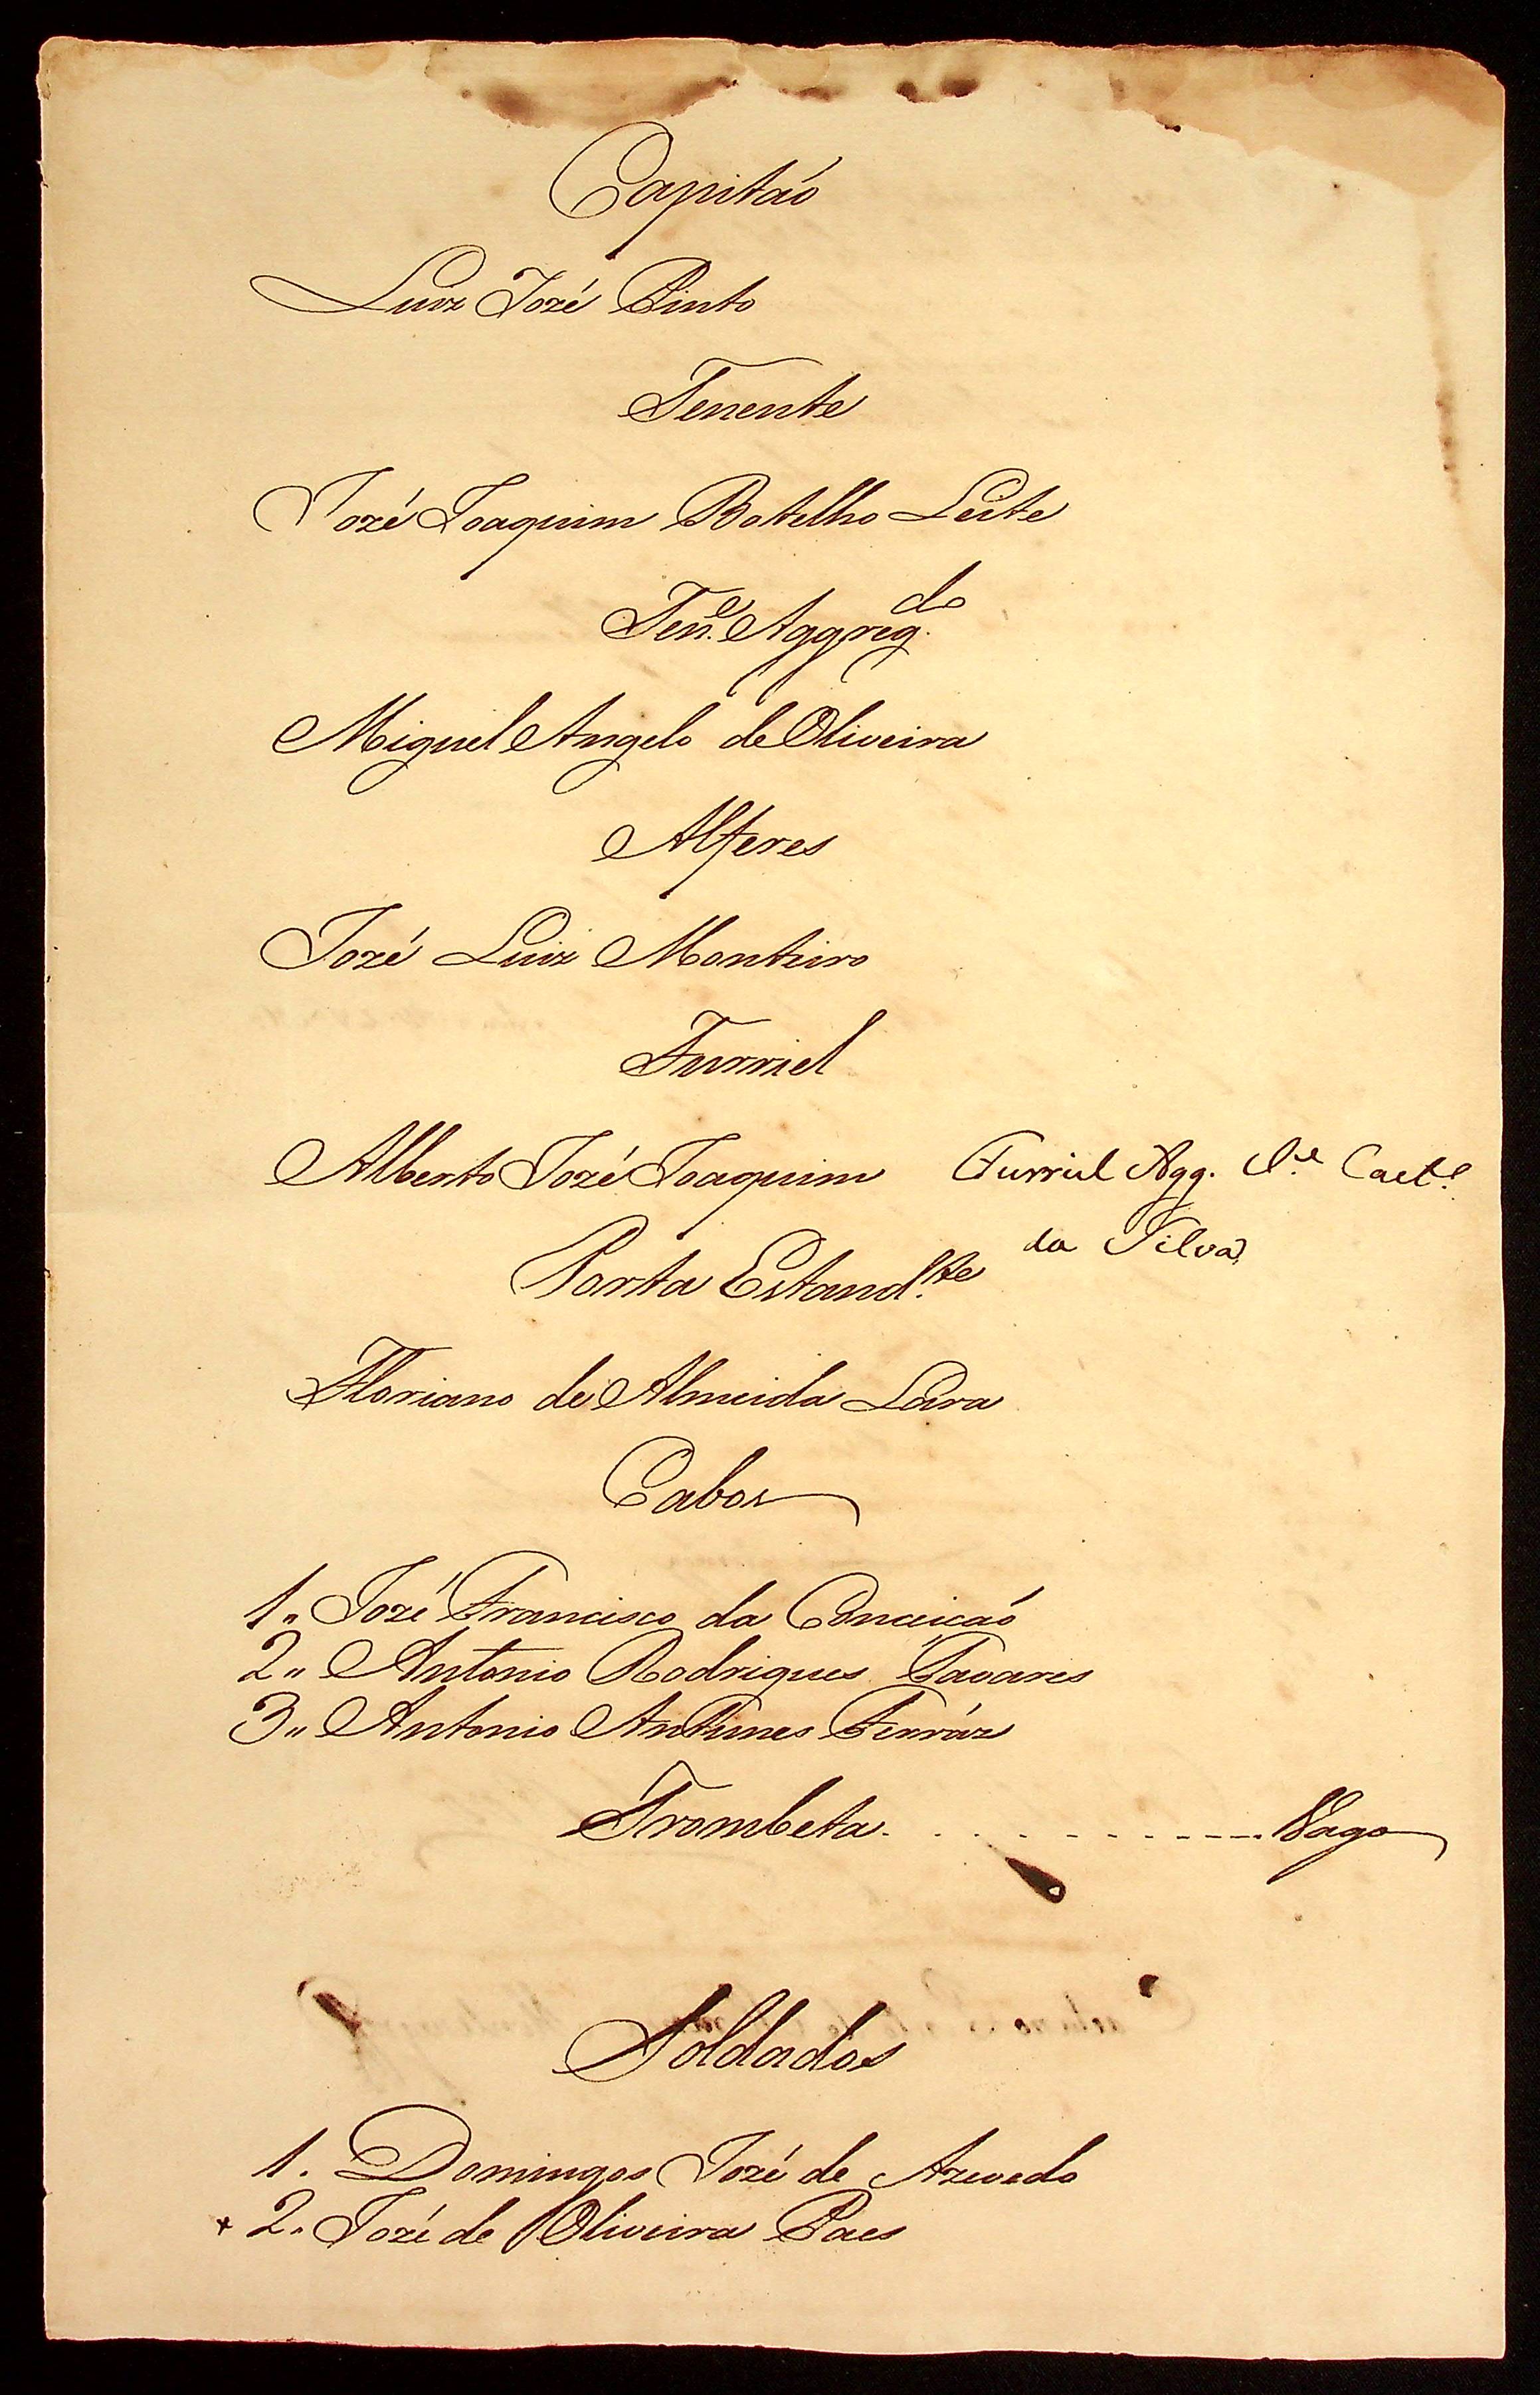 Capitáo
Luiz Jozé Pinto
Tenente
Jozé Joaquim Botelho Leite
Ten.e Aggreg.do
Miguel Angelo de Oliveira
Alferes
Jozé Luiz Monteiro
Furriel
Alberto Jozé Joaquim Furriel Agg. J.e Caet.o
da Silva
Porta Estand.te
Floriano de Almeida Lara
Cabos
1" Jozé Francisco da Conceicáo
2" Antonio Rodrigues Tavares
3" Antonio Antunes Ferráz
Trombeta. . . . . . . . . . . . . Vago
Soldados
1. Domingos Jozé de Azevedo
+ 2. Jozé de Oliveira Paes